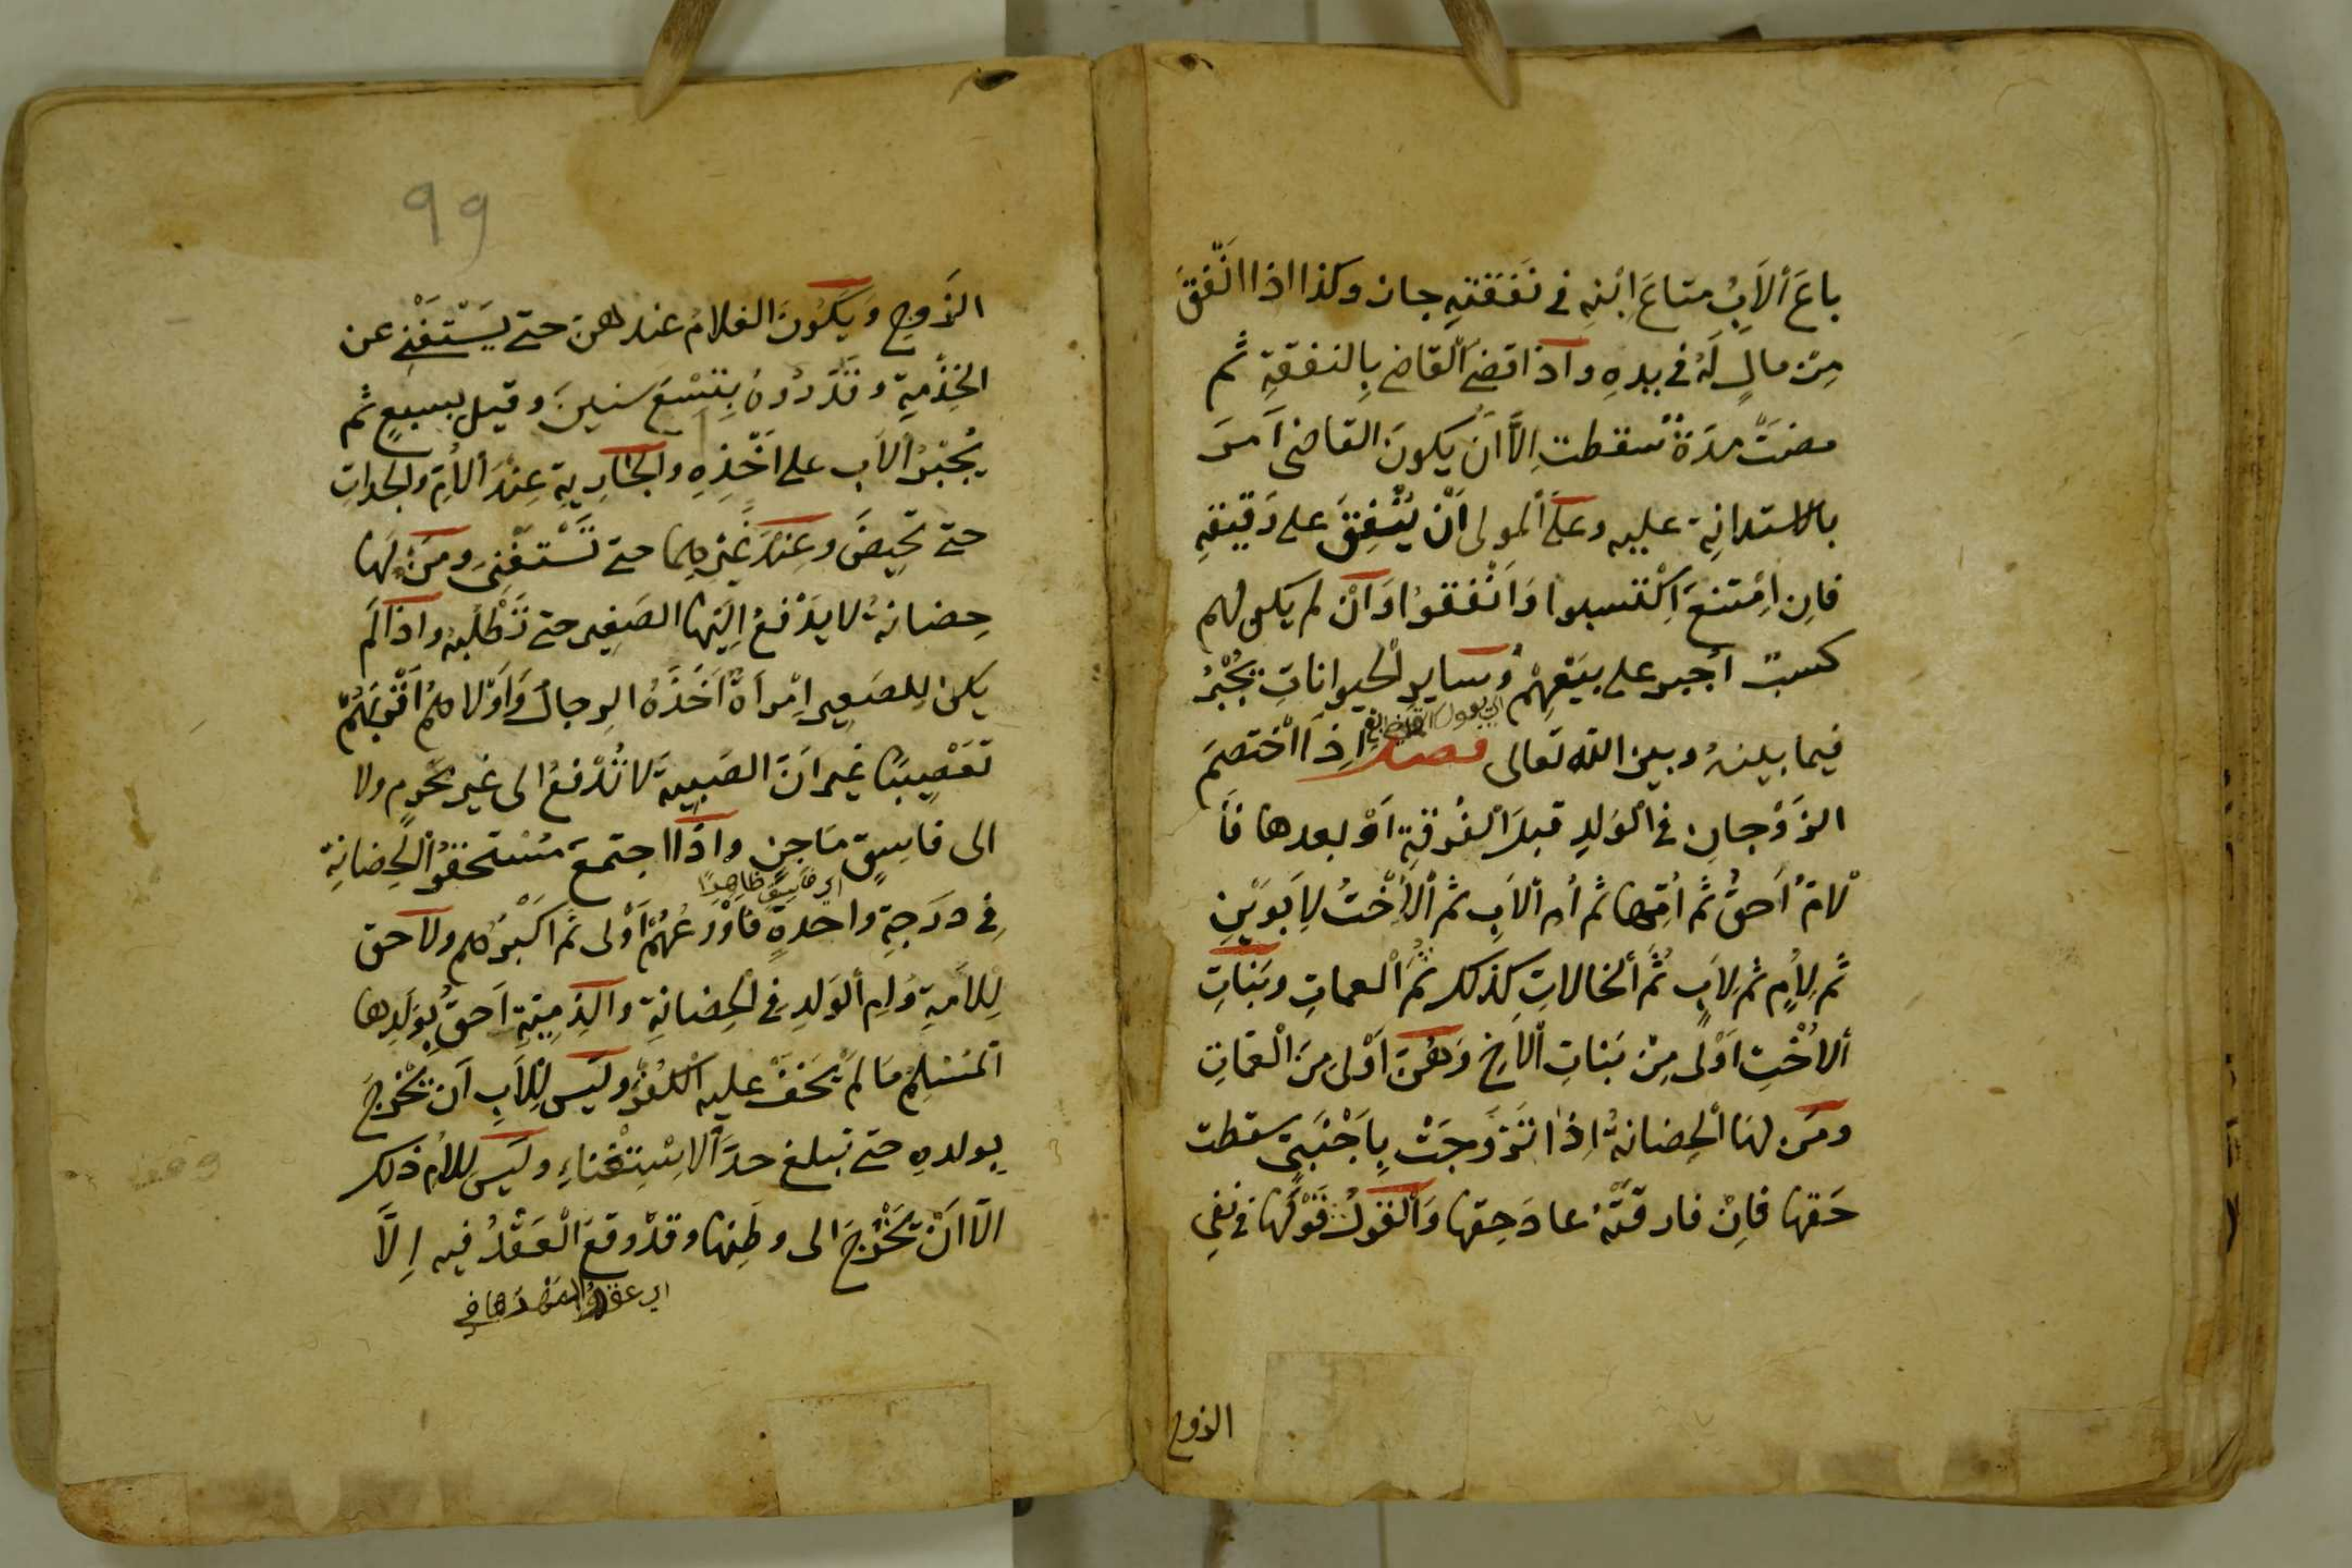 باعَ ألاَبُ متاعَ اِبْنِهِ في نَفَقَتِهِ جاز وكذا اذا انْفَقَ
مِن مالٍ لَهُ في يدِهِ واذا قضىَ القاضي بِالنفقةِ ثم
مضتْ مدَةٌ سقطتِ اِلاَّ اَنْ يكونَ القاضى اَمرَ
بالاستدانِة عليه وعلَى ألمولى اَنْ يُنْفِقَ على رَقيقهِ
فاِنِ اِمْتنعَ اِكْتسبوا وَاَنْفَقوُا وَاَنْ لم يكن لهم
كسبٌ اُجبر على بيَعْهِمْ وَساير لْحيواناتِ يُجْبَرُ
فيما بينهُ وبين اللّه تَعالى فصل اِذَا اخْتصَمَ
الزَوْجانِ في الْوَلدِ قبلَ الْفُرقَةِ اَوْ بعدها فَأ
لْامُ اَحقُّ ثُم اُمّها ثم اُم الْاَبِ ثم الْاُخْتُ لِاَبَوَيْنِ
ثم لِاُمٍ ثم لِاَبٍ ثُمَّ ألخالاتِ كذلك ثُمَّ ألعماتِ وبَناتِ
ألاُخْتِ اَوْلى مِنْ بَناتِ الْاَخِ وَهُنَّ اَوْلى مِنَ الْعَمّاتِ
ومَن لها الْحِضانةُ اِذا تَزَوَجَتْ بِاَجْنَبيٍّ سقطت
حَقها فاِنْ فارقَتْهُ عادَ حقها وَالْقولُ قَوْلُها في نفيِ
الزوج
99
الزَوجِ وَيَكُونَ الغلامُ عندهنَ حتى يَسْتَغْنِىَ عن
الخِدْمةِ وقَدّرُوهُ بِتِسْعَ سنينَ وقيل بسبعٍ ثم
يُجْبَرُ ألاَب على اَخْذِهِ والْجَارِيةِ عِنْدَ ألاُمِ والجداتِ
حتى تَحِيضَ وعِنْدَ غَيْرِهما حتى تَسْتغْنِىَ ومَن لها
حِضانةُ لا يدْفعُ اِليَها الصَغير حتى تَطْلُبهُ واذا لَم
يكن لِلصَغير اِمْراَةٌ اَخَذَهُ الرجالُ وَاَوْلاهُمُ اَقْرَبَهُمُ
تَعْصِيبًا غير اَنَّ الصَبيةَ لا تُدْفعُ الى غير مَحْرمٍ ولا
الى فاسِقٍ مَاجنٍ واذا اجتمعَ مُسْتحقوُ الْحِضانِة
اى فاسِق ظاهِرًا
فِي دَرَجةٍ واحدةٍ فَاَوْرَعُهُمْ اَوْلى ثم اَكْبَرُهُم ولاَحق
لِلْاَمةِ وُامِ الوَلدِ في الْحِضانةِ والذِمِيّةِ اَحقُّ بِوَلَدِها
الْمسْلمُ مَا لمَ يَخَفْ عليه الْكُفْر ولَيَس لِلْاَبِ اَن يَخْرجَ
بولدهِ حتى يبلغ حدَّ الاِسْتِغْناءِ ولَيَس لِلاُم ذلك
الّا اَنْ تَخْرُجَ الى وطَنِها وقدْ وقعَ الْعَقْدُ فيه اِلَّا